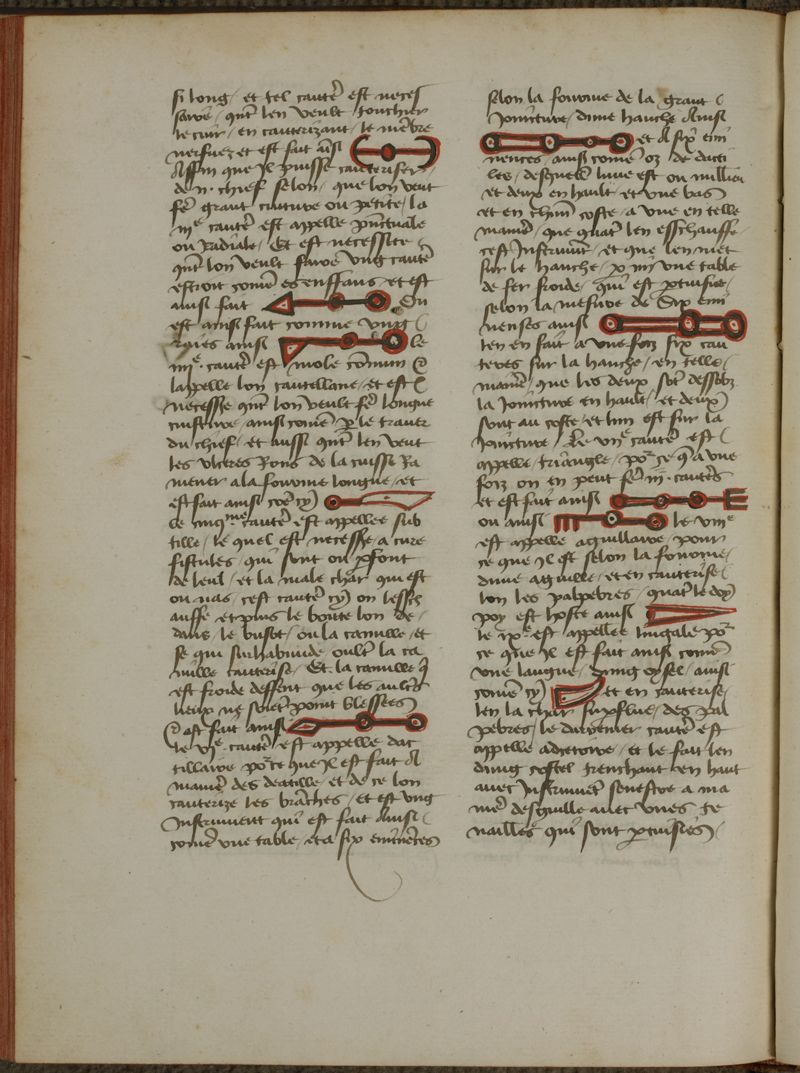 si long / et tel caut̃e est neces
saire / qñt len veult touchier
le cuir / en cauterizant / le mẽbre
nerfuez et est fait aĩsi
Affin que Il puisse cauteriser /
de chief selon / que lon veut
fẽ grant cauture ou petite / la
iiiᵉ cautẽ est appelle põctuale
ou Radiale / Et est necessite
qñt lon veult faire vng cautẽ
estroit comẽ es enffans / et est
ainsi fait Ou
est ainsi fait comme vng
ainsi le
iiiiᵉ cautẽ est mole cõmun
lappelle lon cautellaire / et est
necesse qñt lon veult fẽ longue
ainsi comẽ p̱ le trauer
du chief / et aussi qñt len veut
les vlceres Rons de la cuisse Ra
mener a la fourme longue / et
est fait ainsi cõe cy
de cinqᵐᵉ cautẽ est appellee sub
tille / le quel est necesse a cure
fistules / qui sont ou pfont
de leul / et la male chãr qui est
ou nas / cest cautẽ cy on lessch
auffe et puis le boute lon de
dans / le busot / ou la canulle / et
se qui surhabunde oultr̃ la ca
nulle cauterise / Et la canulle q̃
est froide deffent que les aultr̃s
lieux ne soiẽt point blessees
est fait ainsi
le vᵉ cautẽ est appelle dac
tillaire põr̃ce que Il est fait A
manier̃ des dectille / et de ce lon
cauterize les brãches / et est vng
Instrument qui est fait Ainsi
comẽ vne table / et a six eminẽces
selon la fourme de la grant
Joincture / dune hanche Ainsi
et A six emi
nences / ainsi comẽ oz de dacti
les / desquelz lune est ou millieu
et deux en hault / et vne bas
et en chũn coste / a vne en telle
manier̃ / que quãt len esschauffe
cest Instrumẽt / et que len met
sur le hanche / vne table
de fer froide / qui est ptuisiee /
selon la mesure de Six emi
nenses ainsi
len en fait a vne foiz six cau
teres sur la hanche / en telle /
manier̃ / que les deux sõt dessobz
la Joincture en hault / et deux
sont au coste / et lun est sur la
Joincture / Le viiᵉ cautẽ est
appelle / triangle / põr̃ ce q̃ a vne
foiz on en peut fẽ iij cautẽs
et est fait ainsi
ou ainsi le viiiᵉ
est appelle aguillaire / pour
ce que Il est selon la fourme /
dune aguille / et en cauterise
lon les palpebres / quãt le
poy est hoste ainsi
le ixᵉ est appellee lingale põr̃
ce que Il est fait ainsi comẽ
vne langue / dung oysel / ainsi
comẽ cy et en cauterise /
len la chãr supflue / des pal
pebres / le darrenier cautẽ est
appelle / et le fait len
dung costel trenchant en haut
auec Instrumẽt senestre a ma
nier̃ desguille auec vnes te
nailles qui sont ptuisies